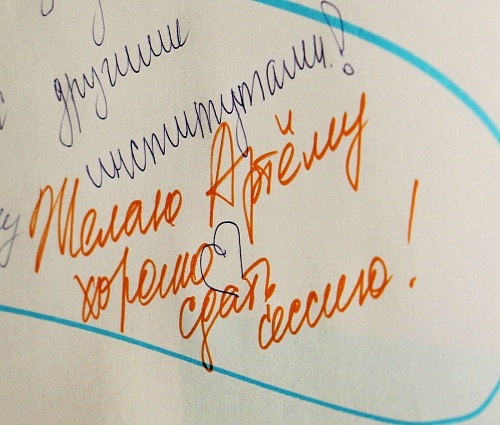 другими
институтами!
Желаю Артёму
хорошо
сдать
сессию!